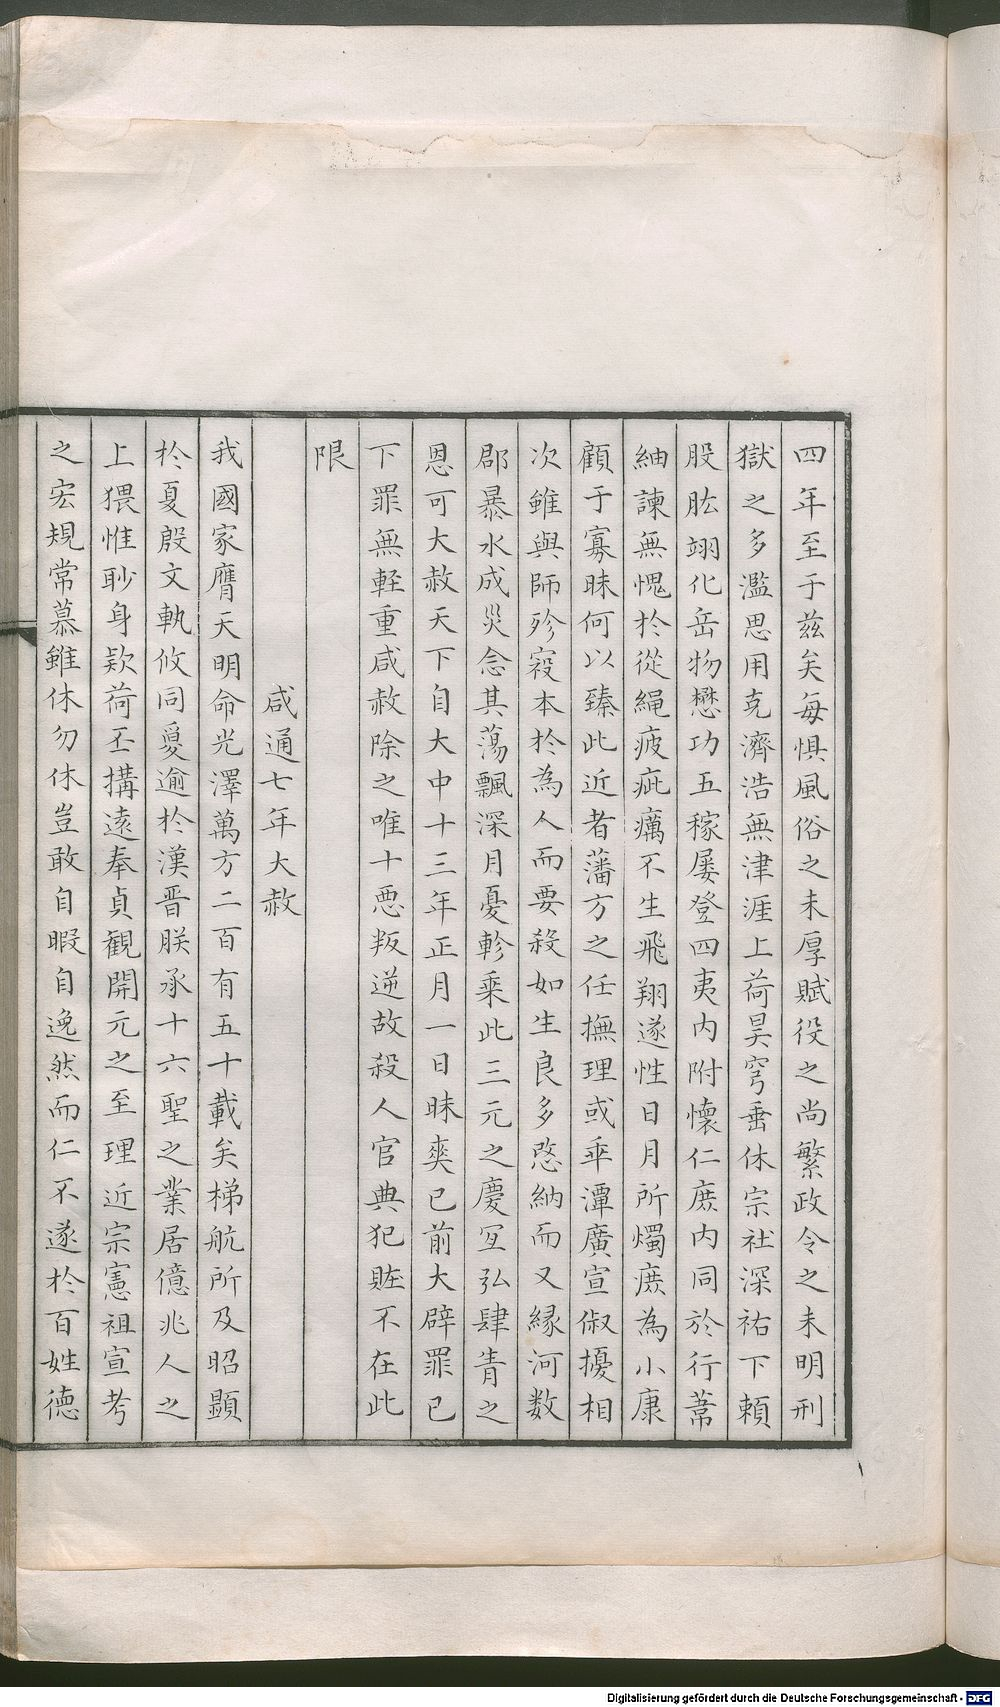 四年至于茲矣每惧風俗之未厚賦役之尚繁政令之未明刑
獄之多濫思用克濟浩無津涯上荷昊穹垂休宗社深祐下賴
股肱翊化岳物懋功五稼屡登四夷内附懷仁庶内同於行葦
紬諫無愧於從繩疲疵癘不生飛翔遂性日月所燭庶為小康
顧于寡昧何以臻此近者藩方之任撫理或乖潭廣宣俶擾相
次雖與師殄寇本於為人而要殺如生良多愍納而又縁河數
郡暴水成災念其蕩飄深月憂軫乘此三元之慶宜弘肆眚之
恩可大赦天下自大中十三年正月一日昧爽已前大辟罪已
下罪無軽重咸赦除之唯十悪叛逆故殺人官典犯賍不在此
限
咸通七年大赦
我國家膺天明命光澤萬方二百有五十載矣梯航所及昭顯
於夏殷文執攸同夐逾於漢晋朕承十六聖之業居億兆人之
上猥惟眇身欵荷丕搆遠奉貞観開元之至理近宗憲祖宣考
之宏規常慕雖休勿休豈敢自暇自逸然而仁不遂於百姓德
Digitalisierung gefördert durch die Deutsche Forschungsgemeinschaft - DFG